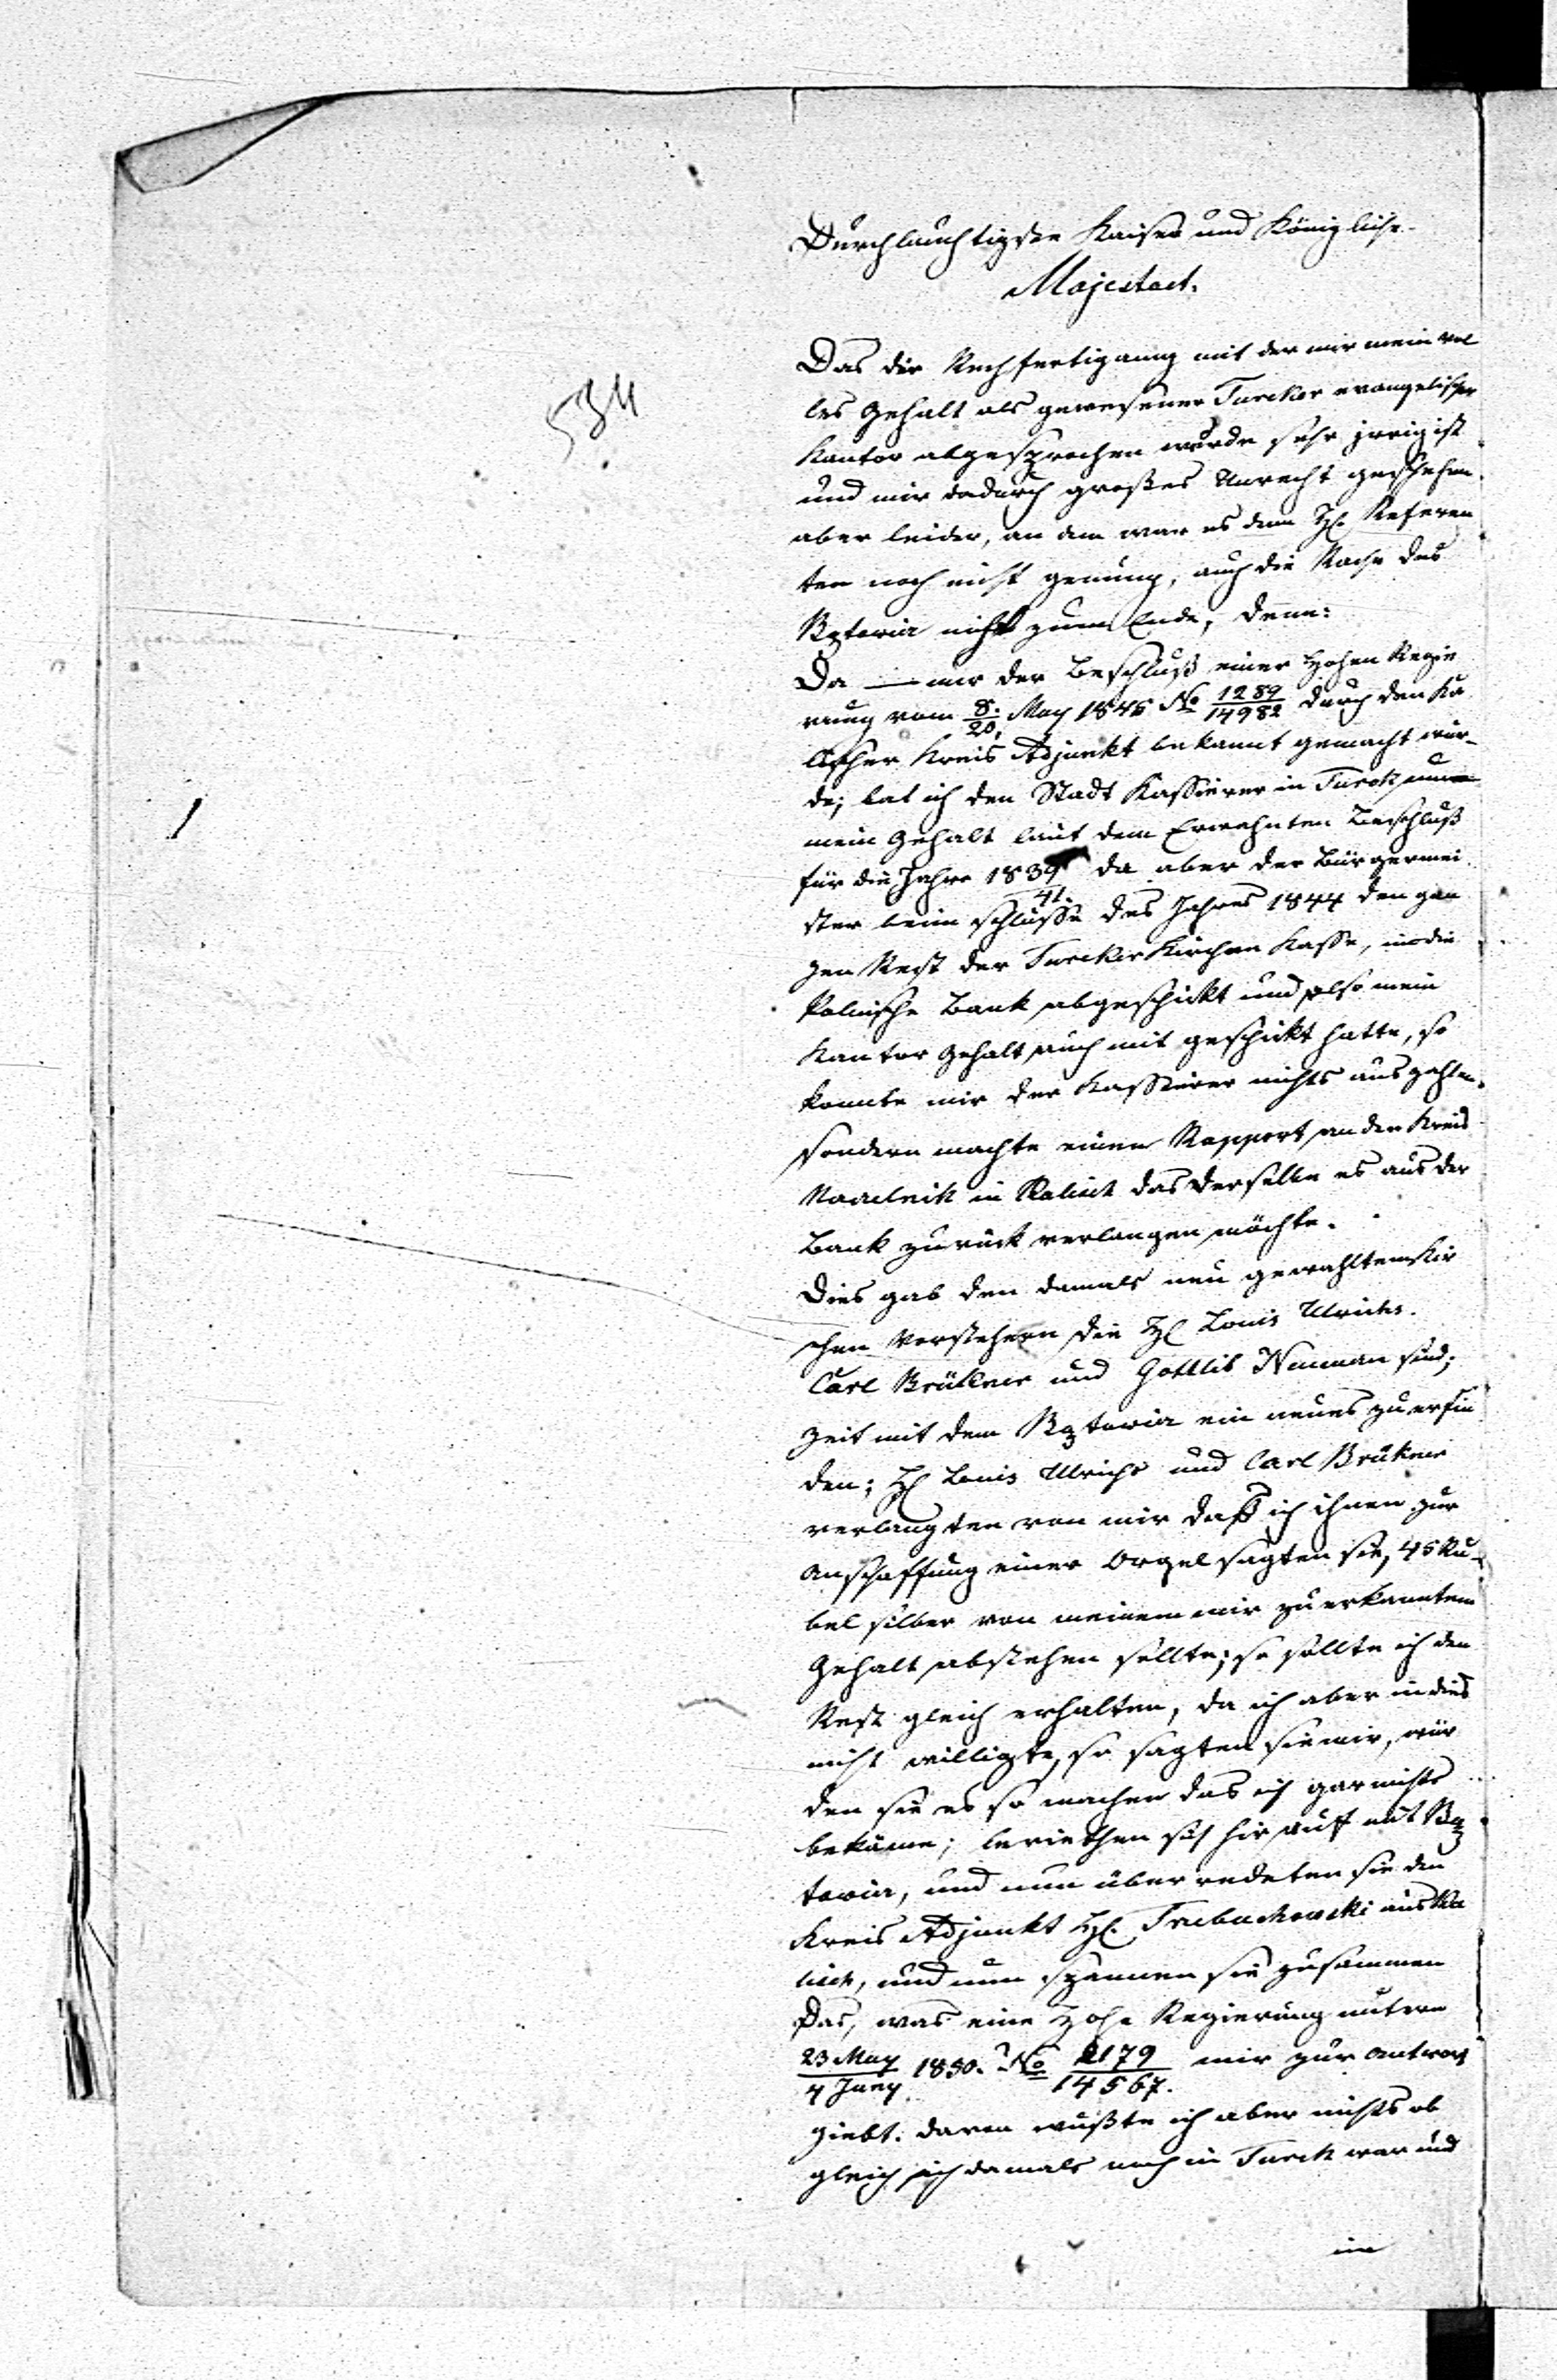 Durchlauchtigste Kaiser und Königliche
Majestaet.
534
Das die Rechfertigung mit der mir mein vol
les Gehalt als gewesener Turcker evangelischer
Kantor abgesprochen wurde sehr irrig ist
und mir dadurch großes Unrecht geschehen.
aber leider, an dem war es dem H. Referen
ten noch nicht genung, auch die Rache des
nicht zum Ende, denn:
Da — mir der Beschluß einer Hohen Regie
rung vom 8./20. May 1845 No 1289/14982 durch den Ka
lischer Kreis Adjunkt bekannt gemacht wur-
de; bat ich den Stadt Kassierer in Turck um
mein Gehalt laut dem Erwehnten Beschluß
für die Jahre 1839/41. da aber der Bürgermei
ster beim schlusse des Jahres 1844 den gan
zen Rest der Turcker Kirchen Kasse, in die
Polnische Bank abgeschickt und also mein
Kantor Gehalt auch mit geschickt hatte, so
konnte mir der Kassierer nichts auszahlen.
sondern machte einen Rapport an den Kreis
Naczelnik in Kalisch das derselbe es aus der
Bank zurück verlangen möchte.
1
Dies gab den damals neu gewahlten Kir
chen Vorstehern die H Louis Ulrichs.
Carl Brükner und Gottlib Neuman sind;
Zeit mit dem ein neues zu erfin
den; H Louis Ullrichs und Carl Brükner
verlangten von mir daß ich ihnen zur
Anschaffung einer Orgel sagten sie, 45 Ru-
bel silber von meinem mir zu erkanntem
Gehalt abstehen sollte; so sollte ich den
Rest gleich erhalten, da ich aber in dies
nicht willigte, so sagten sie mir, wür
den sie es so machen das ich gar nichts
bekäme; beriethen sich hir auf mit
und nun über redeten sie den
Kreis Adjunkt H. Trubachowski aus Ka
lisch, und nun spannen sie zusammen
Das, was eine Hohe Regierung unterm
23 May/4 Juny 1850. No 2179/14567. mir zur Antwort
giebt. davon wußte ich aber nichts ob
gleich ich damals noch in Turck war und
im